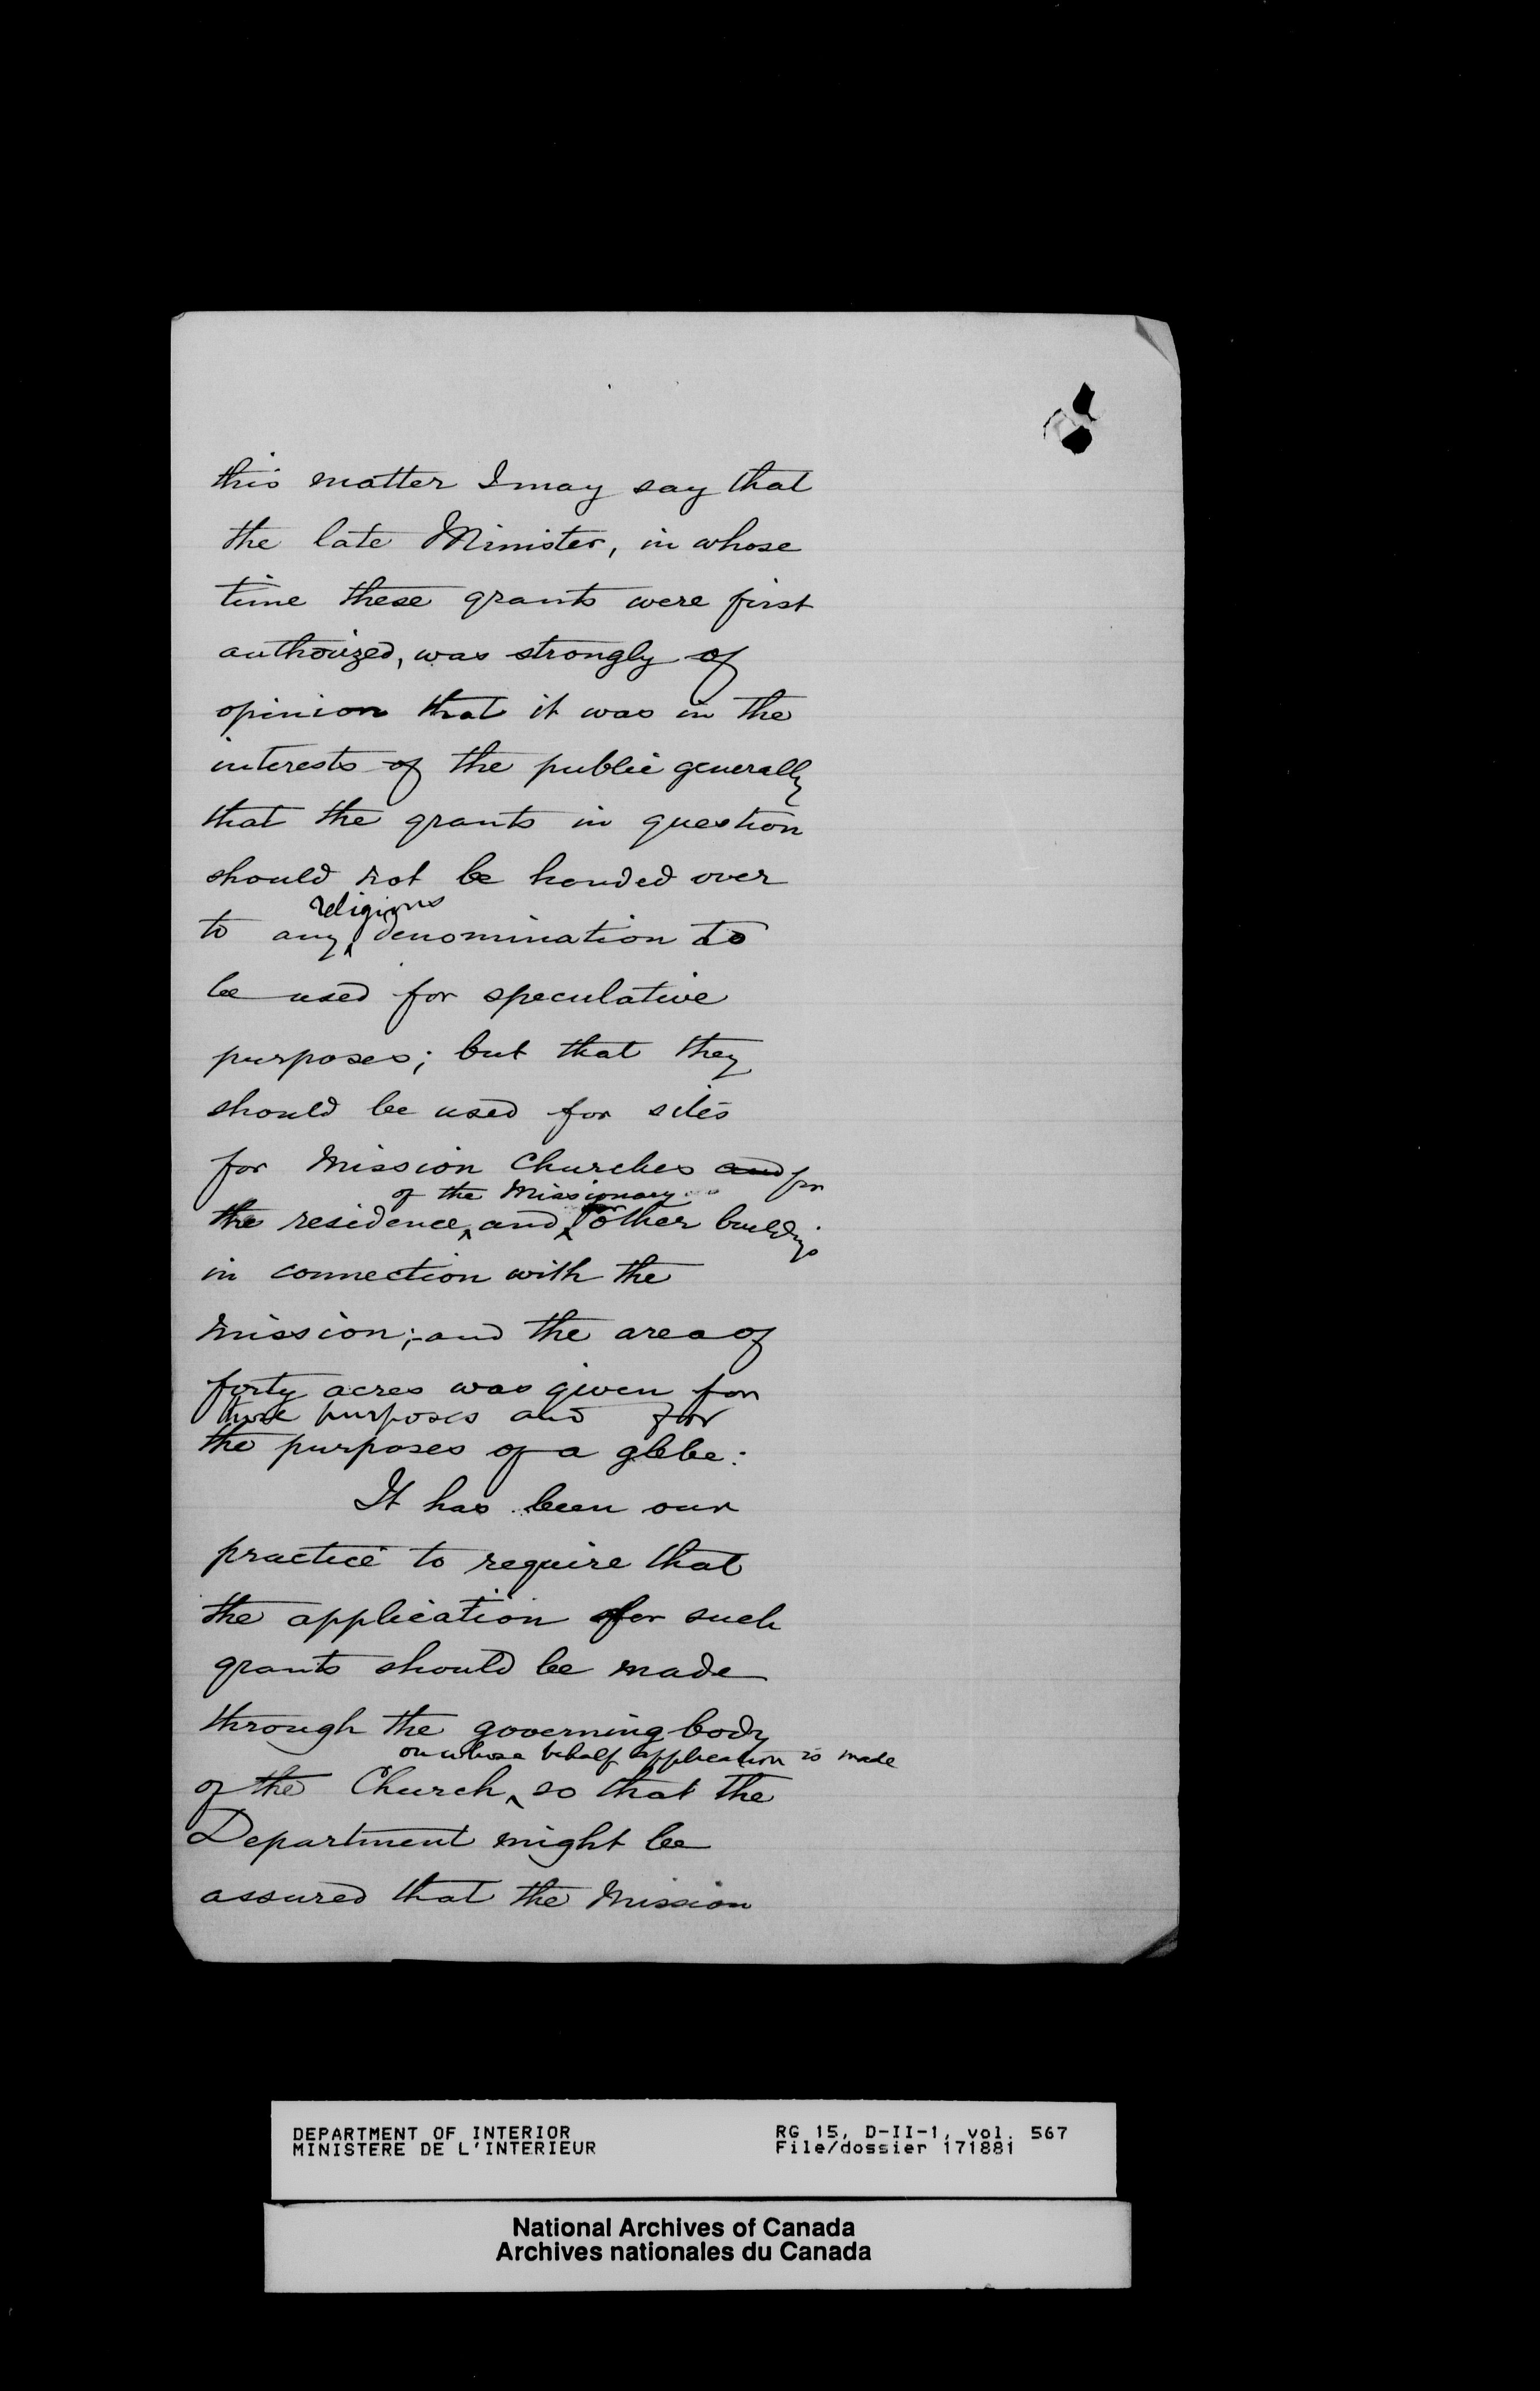 this matter I may say that
the late Minister, in whose
time these grants were first
authorized, was strongly of
opinion that it was in the
interests of the public generally
that the grants in question
should not be handed over
religious
to any denomination to
be used for speculative
purposes; but that they
should be used for sites
for Mission Churches and for
of the Missionary
the residence, and for other buildings
in connection with the
Mission; and the area of
forty acres was given for
those purposes and for
the purposes of a glebe:
It has been our
practice to require that
the application for such
grants should be made
through the governing body
on whose behalf application is made
of the Church, so that the
Department might be
assured that the Mission
DEPARTMENT OF INTERIOR RG 15, D-II-1, vol. 567
MINISTERE DE L'INTERIEUR File/dossier 171881
National Archives of Canada
Archives nationales du Canada